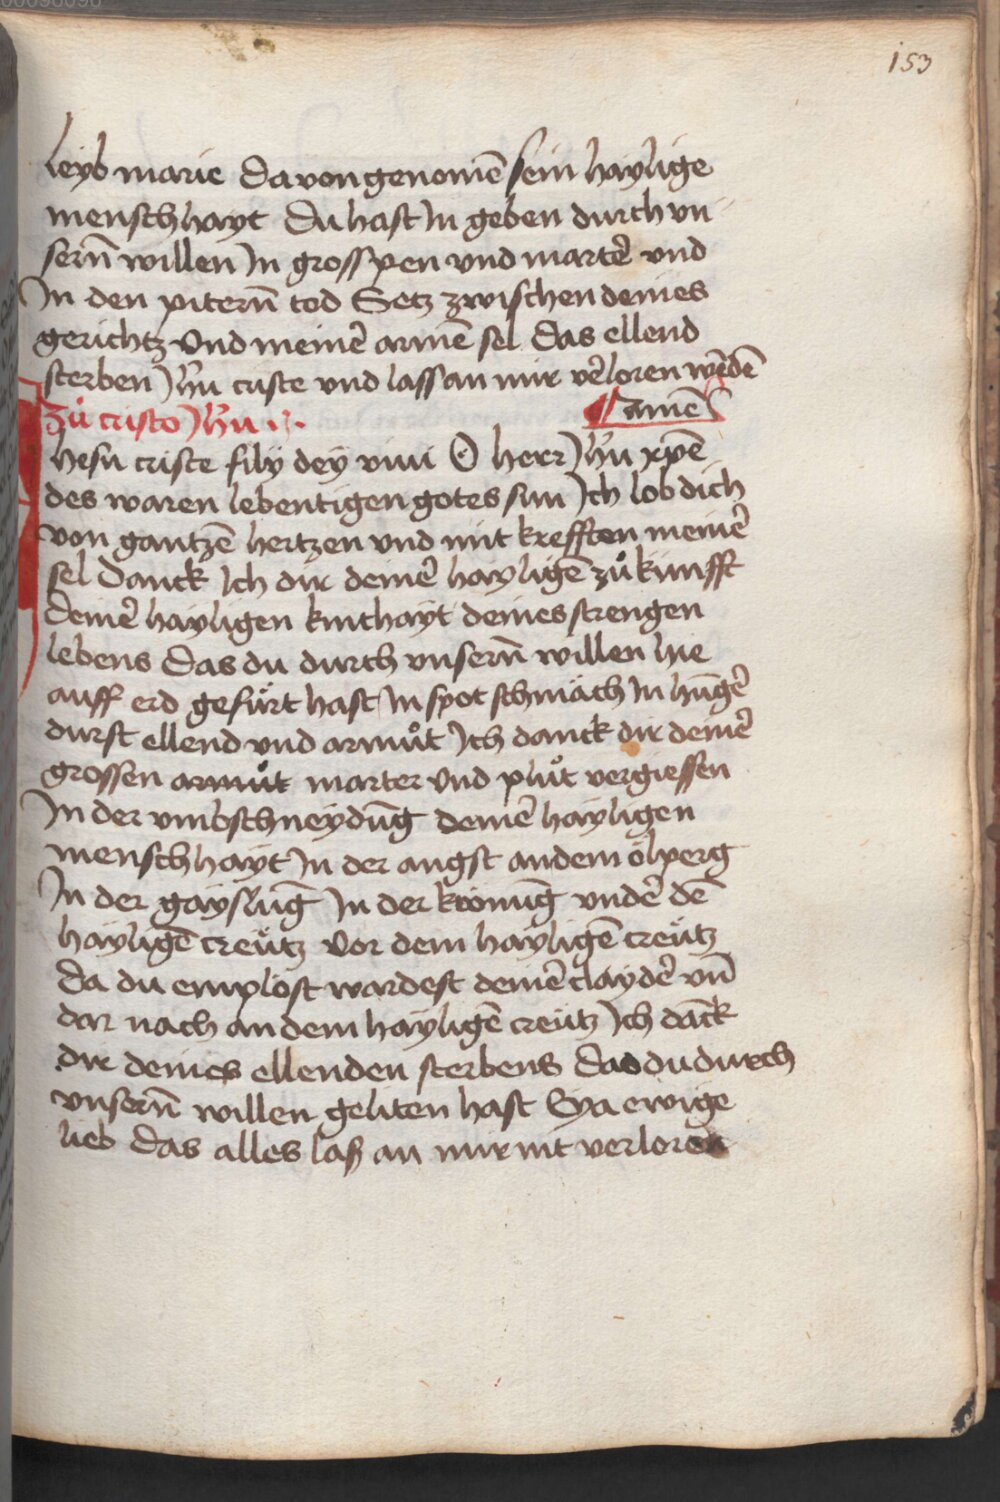 153
leyb marie Da von genomē sein haylige
menschhayt Du hast In geben durch vn
serñ willen In gross pen vnd martẽ vnd
In den piterñ tod Setz zwischen deines
gerichtz vnd meinẽ armē sel Das ellend
sterben Jhu criste vnd lass an mir vẽloren wẽdē
amē
zů cristo Jhu
hesu criste filÿ deÿ viui O herr Jhu xpē
des waren lebentigen gotes sun Ich lob dich
von gantzē hertzen vnd mit krefften meinẽ
sel Danck Ich dir deinẽ hayligē zůkunfft
Deinẽ hayligen kinthayt deines strengen
lebens Das du durch vnserñ willen hie
auff erd gefürt hast In spot schmäch In hūgẽ
durst ellend vnd armůt Ich danck dir deinẽ
grossen armůt marter vnd plůt vergiessen
In der vmbschneydūg deinẽ hayligen
menschhayt In der angst an dem ölperg
In der gayslūg In der kronūg vndẽ dē
hayligē creütz vor dem hayligē creütz
Da du emplöst wardest deinẽ claydẽ vñ
dar nach an dem hayligē creütz Ich dāck
dir deines ellenden sterbens Das du durch
vnserñ willen geliten hast Eya ewige
lieb Das alles laß an mir nit verloren